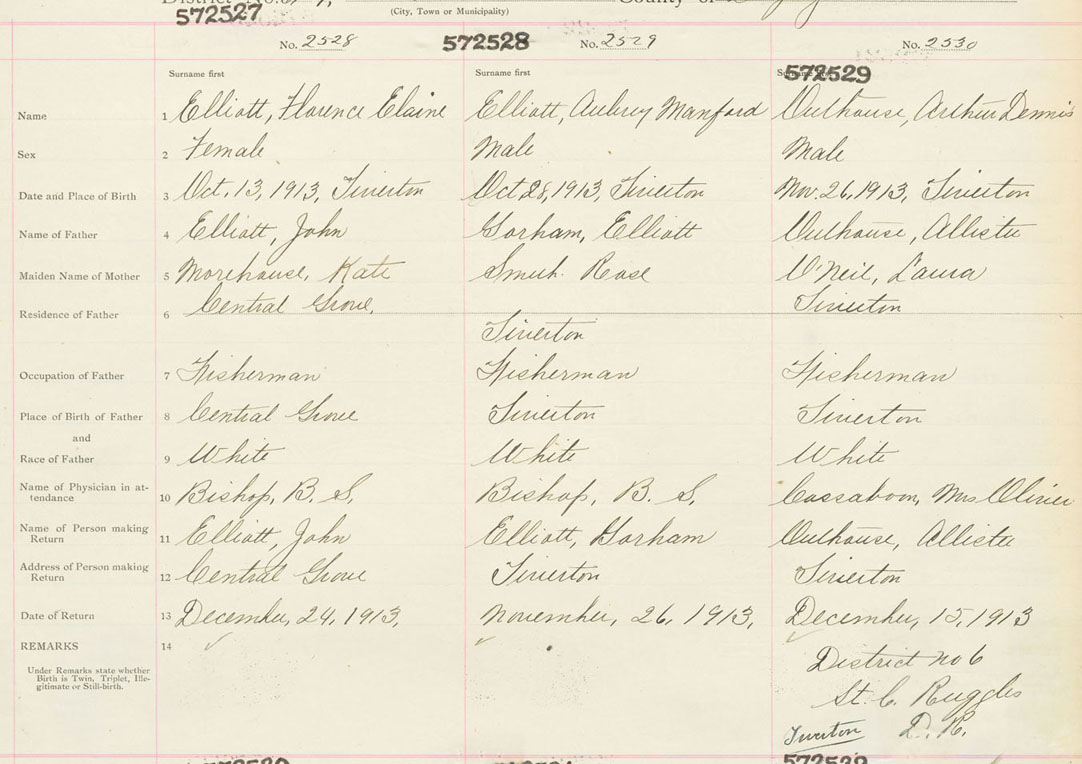 572527
(City, Town or Municipality)
County of
No. 2528
572528
No. 2529
No. 2530
572529
Surname first
Surname first
Name 1 Elliott, Florence Elaine Elliott, Aubrey Manford Outhouse, Arthur Dennis
Sex 2 Female Male Male
Date and Place of Birth 3 Oct. 13, 1913, Tiverton Oct 28, 1913, Tiverton Nov. 26, 1913, Tiverton
Name of Father 4 Elliott, John Gorham, Elliott Outhouse, Allister
Maiden Name of Mother 5 Morehouse, Kate Rose O'Neil, Laura
Residence of Father 6 Central Grove, Tiverton Tiverton
Occupation of Father 7 Fisherman Fisherman Fisherman
Place of Birth of Father 8 Central Grove Tiverton Tiverton
and
Race of Father 9 White White White
Name of Physician in at-
tendance 10 Bishop, B. S. Bishop, B. S. Cossaboom, Mrs Oliver
Name of Person making
Return 11 Elliott, John Elliott, Gorham Outhouse, Allister
Address of Person making
Return 12 Central Grove Tiverton Tiverton
Date of Return 13 December, 24, 1913, November, 26, 1913, December, 15, 1913
REMARKS 14
Under Remarks state whether
Birth is Twin, Triplet, Ille-
gitimate or Still-birth.
District no 6
St. C. Ruggles
Tiverton D. R.